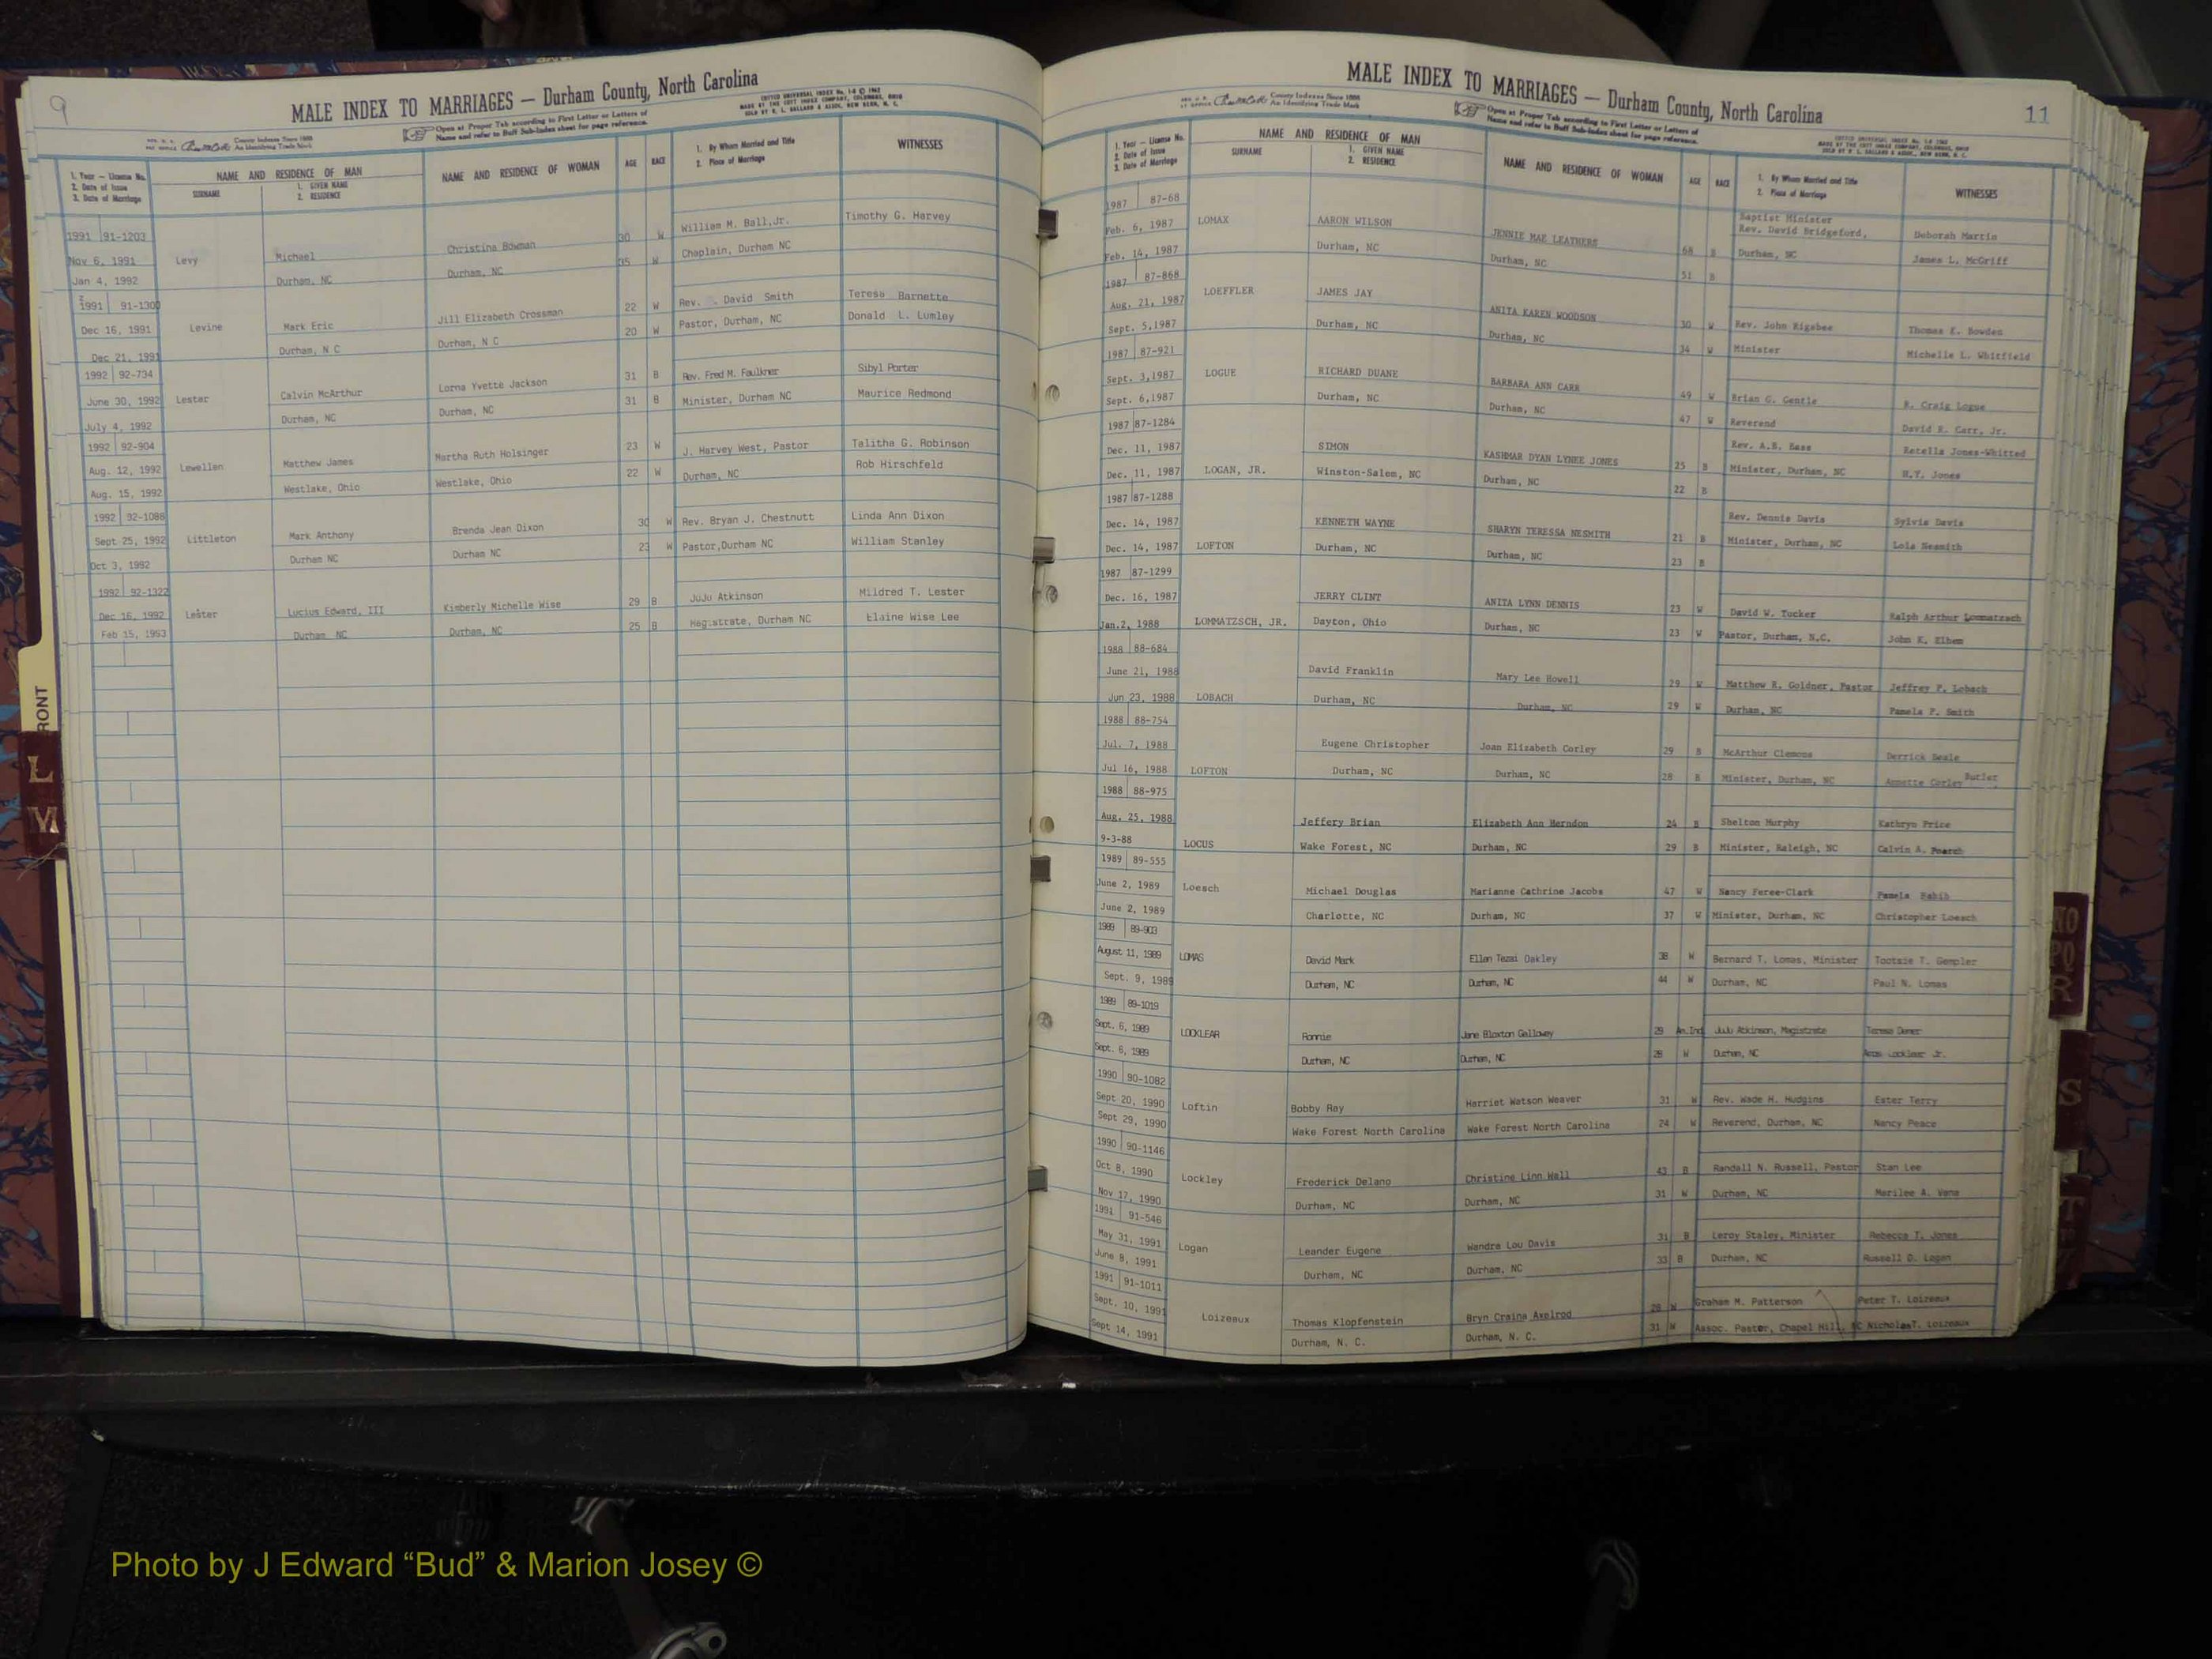 9
MALE INDEX TO MARRIAGES — Durham County, North Carolina
County Indexes Since 1888
An Identifying Trade Mark
Open at Proper Tab according to First Letter or Letters of
Name and refer to Buff Sub-Index sheet for page reference.
1. Year — License No.
2. Date of Issue
3. Date of Marriage
NAME AND RESIDENCE OF MAN
SURNAME
1. GIVEN NAME
2. RESIDENCE
NAME AND RESIDENCE OF WOMAN
AGE
RACE
1. By Whom Married and Title
2. Place of Marriage
WITNESSES
1991 91-1203 30 W William M. Ball,Jr. Timothy G. Harvey
Nov 6, 1991 Levy Michael Christina Bowman 35 W Chaplain, Durham NC
Jan 4, 1992 Durham, NC Durham, NC
1991 91-1300 22 W Rev. David Smith Teresa Barnette
Dec 16, 1991 Levine Mark Eric Jill Elizabeth Crossman 20 W Pastor, Durham, NC Donald L. Lumley
Dec 21, 1991 Durham, N C Durham, N C
1992 92-734 31 B Rev. Fred M. Faulkner Sibyl Porter
June 30, 1992 Lester Calvin McArthur Lorna Yvette Jackson 31 B Minister, Durham NC Maurice Redmond
July 4, 1992 Durham, NC Durham, NC
1992 92-904 23 W J. Harvey West, Pastor Talitha G. Robinson
Aug. 12, 1992 Lewellen Matthew James Martha Ruth Holsinger 22 W Durham, NC Rob Hirschfeld
Aug. 15, 1992 Westlake, Ohio Westlake, Ohio
1992 92-1088 30 W Rev. Bryan J. Chestnutt Linda Ann Dixon
Sept 25, 1992 Littleton Mark Anthony Brenda Jean Dixon 23 W Pastor,Durham NC William Stanley
Oct 3, 1992 Durham NC Durham NC
1992 92-1322 29 B JuJu Atkinson Mildred T. Lester
Dec 16, 1992 Lester Lucius Edward, III Kimberly Michelle Wise 25 B Magistrate, Durham NC Elaine Wise Lee
Feb 15, 1993 Durham NC Durham, NC
RONT
L
M
MALE INDEX TO MARRIAGES — Durham County, North Carolina
11
County Indexes Since 1888
An Identifying Trade Mark
Open at Proper Tab according to First Letter or Letters of
Name and refer to Buff Sub-Index sheet for page reference.
1. Year — License No.
2. Date of Issue
3. Date of Marriage
NAME AND RESIDENCE OF MAN
SURNAME
1. GIVEN NAME
2. RESIDENCE
NAME AND RESIDENCE OF WOMAN
AGE
RACE
1. By Whom Married and Title
2. Place of Marriage
WITNESSES
1987 87-68 Baptist Minister
Feb. 6, 1987 LOMAX AARON WILSON JENNIE MAE LEATHERS 68 B Rev. David Bridgeford, Deborah Martin
Feb. 14, 1987 Durham, NC Durham, NC 51 B Durham, NC James L. McGriff
1987 87-868
Aug. 21, 1987 LOEFFLER JAMES JAY ANITA KAREN WOODSON 30 W Rev. John Rigsbee Thomas E. Bowden
Sept. 5,1987 Durham, NC Durham, NC 34 W Minister Michelle L. Whitfield
1987 87-921
Sept. 3,1987 LOGUE RICHARD DUANE BARBARA ANN CARR 49 W Brian G. Gentle R. Craig Logue
Sept. 6,1987 Durham, NC Durham, NC 47 W Reverend David R. Carr, Jr.
1987 87-1284
Dec. 11, 1987 SIMON KASHMAR DYAN LYNEE JONES 25 B Rev. A.B. Bass Retella Jones-Whitted
Dec. 11, 1987 LOGAN, JR. Winston-Salem, NC Durham, NC 22 B Minister, Durham, NC W.T. Jones
1987 87-1288
Dec. 14, 1987 KENNETH WAYNE SHARYN TERESSA NESMITH 21 B Rev. Dennis Davis Sylvia Davis
Dec. 14, 1987 LOFTON Durham, NC Durham, NC 23 B Minister, Durham, NC Lois Nesmith
1987 87-1299
Dec. 16, 1987 JERRY CLINT ANITA LYNN DENNIS 23 W David W. Tucker Ralph Arthur Lommatzsch
Jan.2, 1988 LOMMATZSCH, JR. Dayton, Ohio Durham, NC 23 W Pastor, Durham, N.C. John K. Elbem
1988 88-684
June 21, 1988 David Franklin Mary Lee Howell 29 W Matthew R. Goldner, Pastor Jeffrey P. Lobach
Jun 23, 1988 LOBACH Durham, NC Durham, NC 29 W Durham, NC Pamela P. Smith
1988 88-754
Jul. 7, 1988 Eugene Christopher Joan Elizabeth Corley 29 B McArthur Clemons Derrick Seale
Jul 16, 1988 LOFTON Durham, NC Durham, NC 28 B Minister, Durham, NC Annette Corley Butler
1988 88-975
Aug. 25, 1988 Jeffery Brian Elizabeth Ann Herndon 24 B Shelton Murphy Kathryn Price
9-3-88 LOCUS Wake Forest, NC Durham, NC 29 B Minister, Raleigh, NC Calvin A.
1989 89-555
June 2, 1989 Loesch Michael Douglas Marianne Cathrine Jacobs 47 W Nancy Feree-Clark Pamela Habib
June 2, 1989 Charlotte, NC Durham, NC 37 W Minister, Durham, NC Christopher Loesch
1989 89-903
August 11, 1989 LOMAS David Mark Ellen Tezai Oakley 38 W Bernard T. Lomas, Minister Tootsie T. Gempler
Sept. 9, 1989 Durham, NC Durham, NC 44 W Durham, NC Paul N. Lomas
1989 89-1019
Sept. 6, 1989 LOCKLEAR Ronnie Jane Bloxton Galloway 29 Am.Ind JuJu Atkinson, Magistrate Teresa
Sept. 6, 1989 Durham, NC Durham, NC 28 W Durham, NC Locklear Jr.
1990 90-1082
Sept 20, 1990 Loftin Bobby Ray Harriet Watson Weaver 31 W Rev. Wade H. Hudgins Ester Terry
Sept 29, 1990 Wake Forest North Carolina Wake Forest North Carolina 24 W Reverend, Durham, NC Nancy Peace
1990 90-1146
Oct 8, 1990 Lockley Frederick Delano Christine Linn Wall 43 B Randall N. Russell, Pastor Stan Lee
Nov 17, 1990 Durham, NC Durham, NC 31 W Durham, NC Marilee A. Vana
1991 91-546
May 31, 1991 Logan Leander Eugene Wandra Lou Davis 31 B Leroy Staley, Minister Rebecca T. Jones
June 8, 1991 Durham, NC Durham, NC 33 B Durham, NC Russell D. Logan
1991 91-1011
Sept. 10, 1991 Loizeaux Thomas Klopfenstein Bryn Craina Axelrod 28 W Graham M. Patterson Peter T. Loizeaux
Sept 14, 1991 Durham, N. C. Durham, N. C. 31 W Assoc. Pastor, Chapel Hill, NC NicholasT. Loizeaux
NO
PQ
R
S
T
Photo by J Edward “Bud” & Marion Josey ©